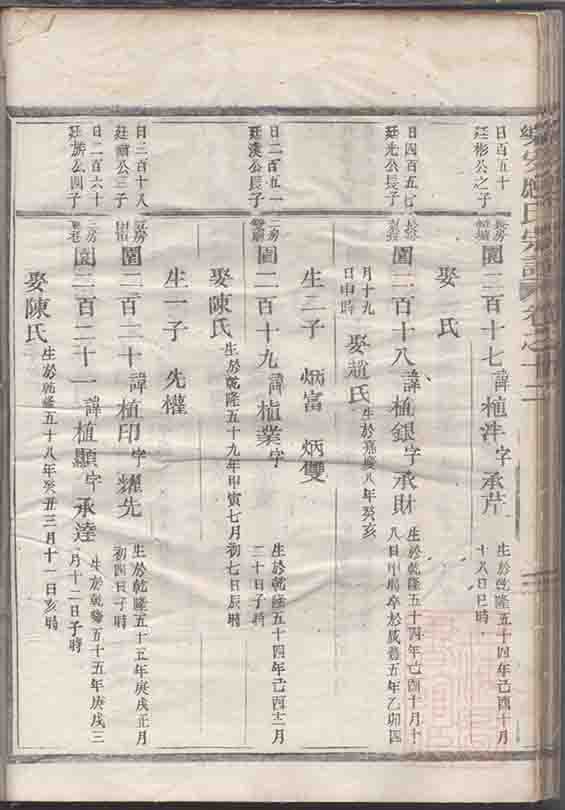 應氏宗譜 卷之十二
日百五十
廷彬公之子
長房
園二百十七 諱植泮 字承芹
生於乾隆五十四年己酉十月
十八日巳時
娶 氏
日四百五七
廷光公長子
園二百十八 諱植銀 字承財
生於乾隆五十四年己酉十月十
八日申時卒於咸豐五年乙卯四
月十九
日申時
娶趙氏 生於嘉慶八年癸亥
生二子 炳富 炳雙
日二百五一
廷漢公長子
二房
園二百十九 諱植業 字
生於乾隆五十四年己酉十二月
二十日子時
娶陳氏 生於乾隆五十九年甲寅七月初七日辰時
生一子 先權
日三百十八
廷 公三子
房
園二百二十 諱植印 字耀先
生於乾隆五十五年庚戌正月
初四日子時
日二百六十
廷 公四子
三房
園二百二十一 諱植顯 字承達
生於乾隆五十五年庚戌三
月十二日子時
娶陳氏 生於乾隆五十八年癸丑三月十一日亥時